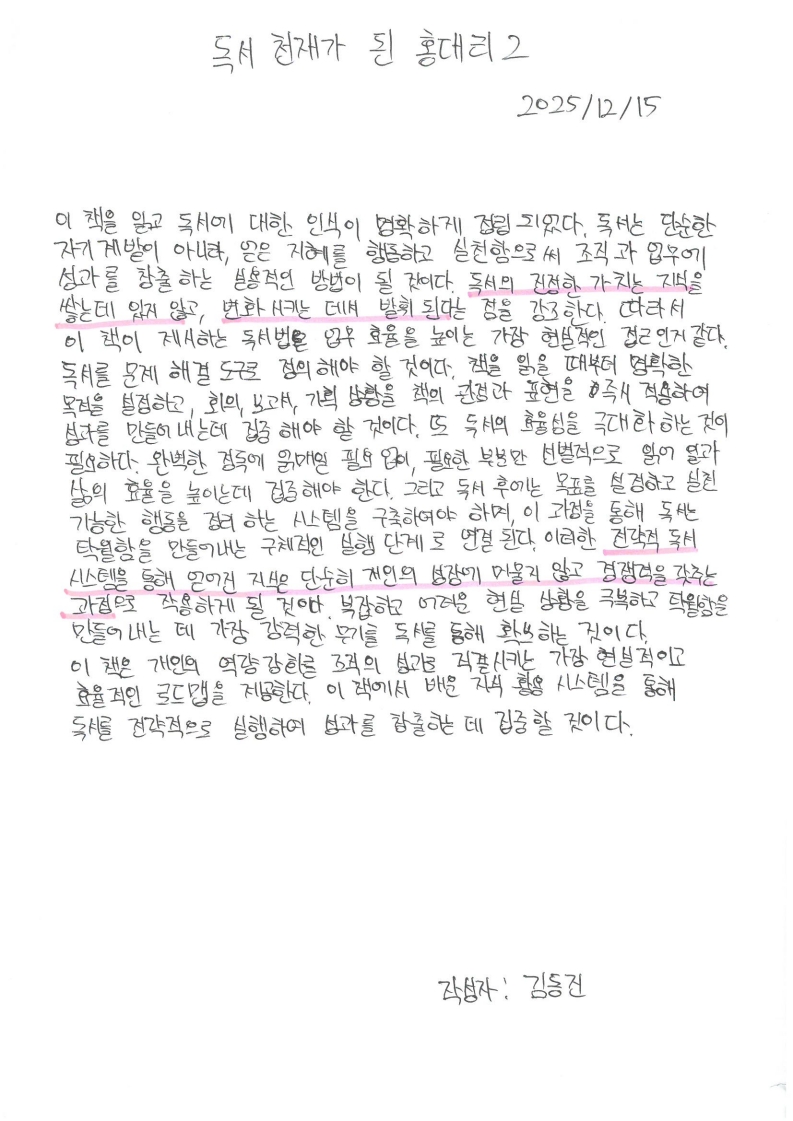 독서 천재가 된 홍대리2
2025/12/15
이 책을 읽고 독서에 대한 인식이 명확하게 정립 되었다. 독서는 단순한
자기계발이 아니라, 얻은 지혜를 행동하고 실천함으로써 조직과 업무에
성과를 창출하는 실용적인 방법이 될 것이다. 독서의 진정한 가치는 지식을
쌓는데 있지 않고, 변화시키는 데서 발휘 된다는 점을 강조한다. 따라서
이 책이 제시하는 독서법은 업무 효율을 높이는 가장 현실적인 접근인거 같다.
독서를 문제 해결 도구로 정의해야 할 것이다. 책을 읽을 때부터 명확한
목적을 설정하고, 회의, 보고서, 기획 상황을 책의 관점과 표현을 즉시 적용하여
성과를 만들어 내는데 집중 해야 할 것이다. 또 독서의 효율성을 극대화 하는 것이
필요하다. 완벽한 정독에 얽매일 필요 없이, 필요한 부분만 선별적으로 읽어 일과
삶의 효율을 높이는데 집중해야 한다. 그리고 독서 후에는 목표를 설정하고 실천
가능한 행동을 정리 하는 시스템을 구축하여야 하며, 이 과정을 통해 독서는
탁월함을 만들어내는 구체적인 실행 단계로 연결 된다. 이러한 전략적 독서
시스템을 통해 얻어진 지식은 단순히 개인의 성장에 머물지 않고 경쟁력을 갖추는
과정으로 작용하게 될 것이다. 복잡하고 어려운 현실 상황을 극복하고 탁월함을
만들어 내는 데 가장 강력한 무기를 독서를 통해 확보하는 것이다.
이 책은 개인의 역량강화를 조직의 성과로 직결시키는 가장 현실적이고
효율적인 로드맵을 제공한다. 이 책에서 배운 지식 활용 시스템을 통해
독서를 전략적으로 실행하여 성과를 창출하는 데 집중할 것이다.
작성자 : 김동진